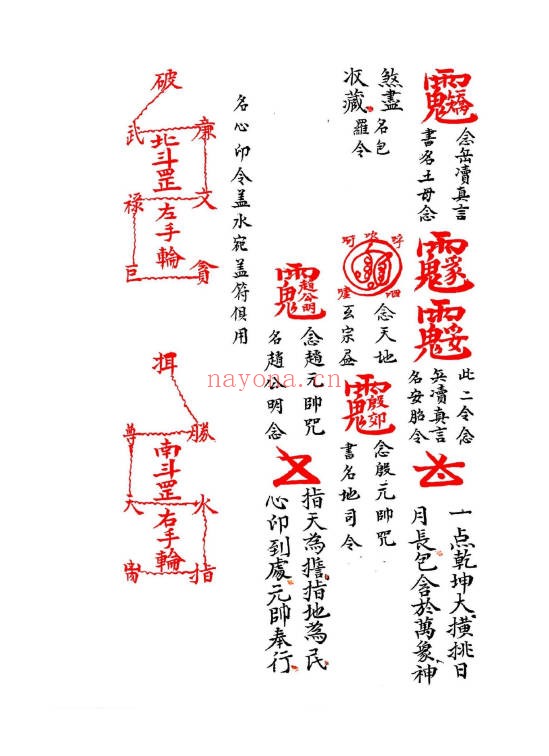 念岳瀆真言
書名土母念
此二令念
岳瀆真言
名安胎令
一点乾坤大橫挑日
月長包含於萬象神
煞盡名包
收藏羅令
呵吹呼
噓呬
念天地
玄宗畢
殷郊
念殷元帥咒
書名地司令
趙公明
念趙元帥咒
名趙公明念
指天為撎指地為民
心印到處元帥奉行
名心印令蓋水宛蓋符俱用
破
武 廉
北斗罡
祿 文
左手輪
巨 貪
尊 勝
南斗罡
天 水
右手輪
指
nayona.cn